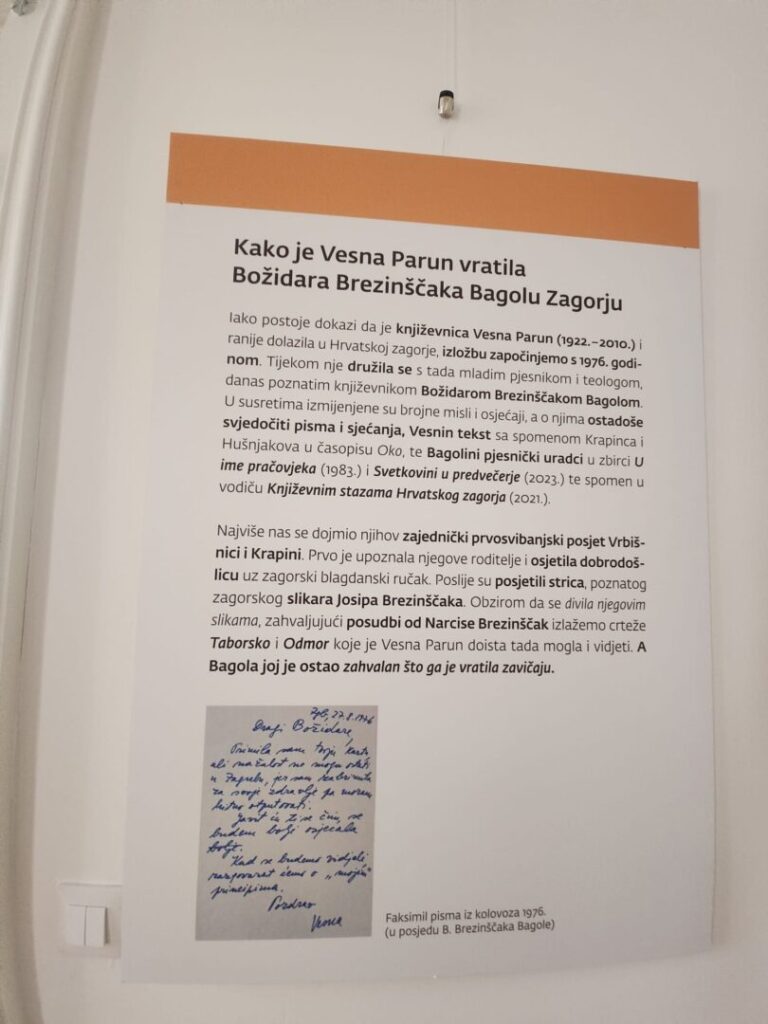 Kako je Vesna Parun vratila
Božidara Brezinščaka Bagolu Zagorju
Iako postoje dokazi da je književnica Vesna Parun (1922.–2010.) i
ranije dolazila u Hrvatskoj zagorje, izložbu započinjemo s 1976. godi-
nom. Tijekom nje družila se s tada mladim pjesnikom i teologom,
danas poznatim književnikom Božidarom Brezinščakom Bagolom.
U susretima izmijenjene su brojne misli i osjećaji, a o njima ostadoše
svjedočiti pisma i sjećanja, Vesnin tekst sa spomenom Krapinca i
Hušnjakova u časopisu Oko, te Bagolini pjesnički uradci u zbirci U
ime pračovjeka (1983.) i Svetkovini u predvečerje (2023.) te spomen u
vodiču Književnim stazama Hrvatskog zagorja (2021.).
Najviše nas se dojmio njihov zajednički prvosvibanjski posjet Vrbiš-
nici i Krapini. Prvo je upoznala njegove roditelje i osjetila dobrodoš-
licu uz zagorski blagdanski ručak. Poslije su posjetili strica, poznatog
zagorskog slikara Josipa Brezinščaka. Obzirom da se divila njegovim
slikama, zahvaljujući posudbi od Narcise Brezinščak izlažemo crteže
Taborsko i Odmor koje je Vesna Parun doista tada mogla i vidjeti. A
Bagola joj je ostao zahvalan što ga je vratila zavičaju.
Zgb, 27.8.1976
Dragi Božidare,
Primila sam tvoju kartu
ali nažalost ne mogu ostati
u Zagrebu, jer sam zabrinuta
za svoje zdravlje pa moram
hitno otputovati.
Javit ću ti se čim se
budem bolje osjećala
bolje.
Kad se budemo vidjeli
razgovarat ćemo o „mojim"
principima.
Pozdrav
Vesna
Faksimil pisma iz kolovoza 1976.
(u posjedu B. Brezinščaka Bagole)